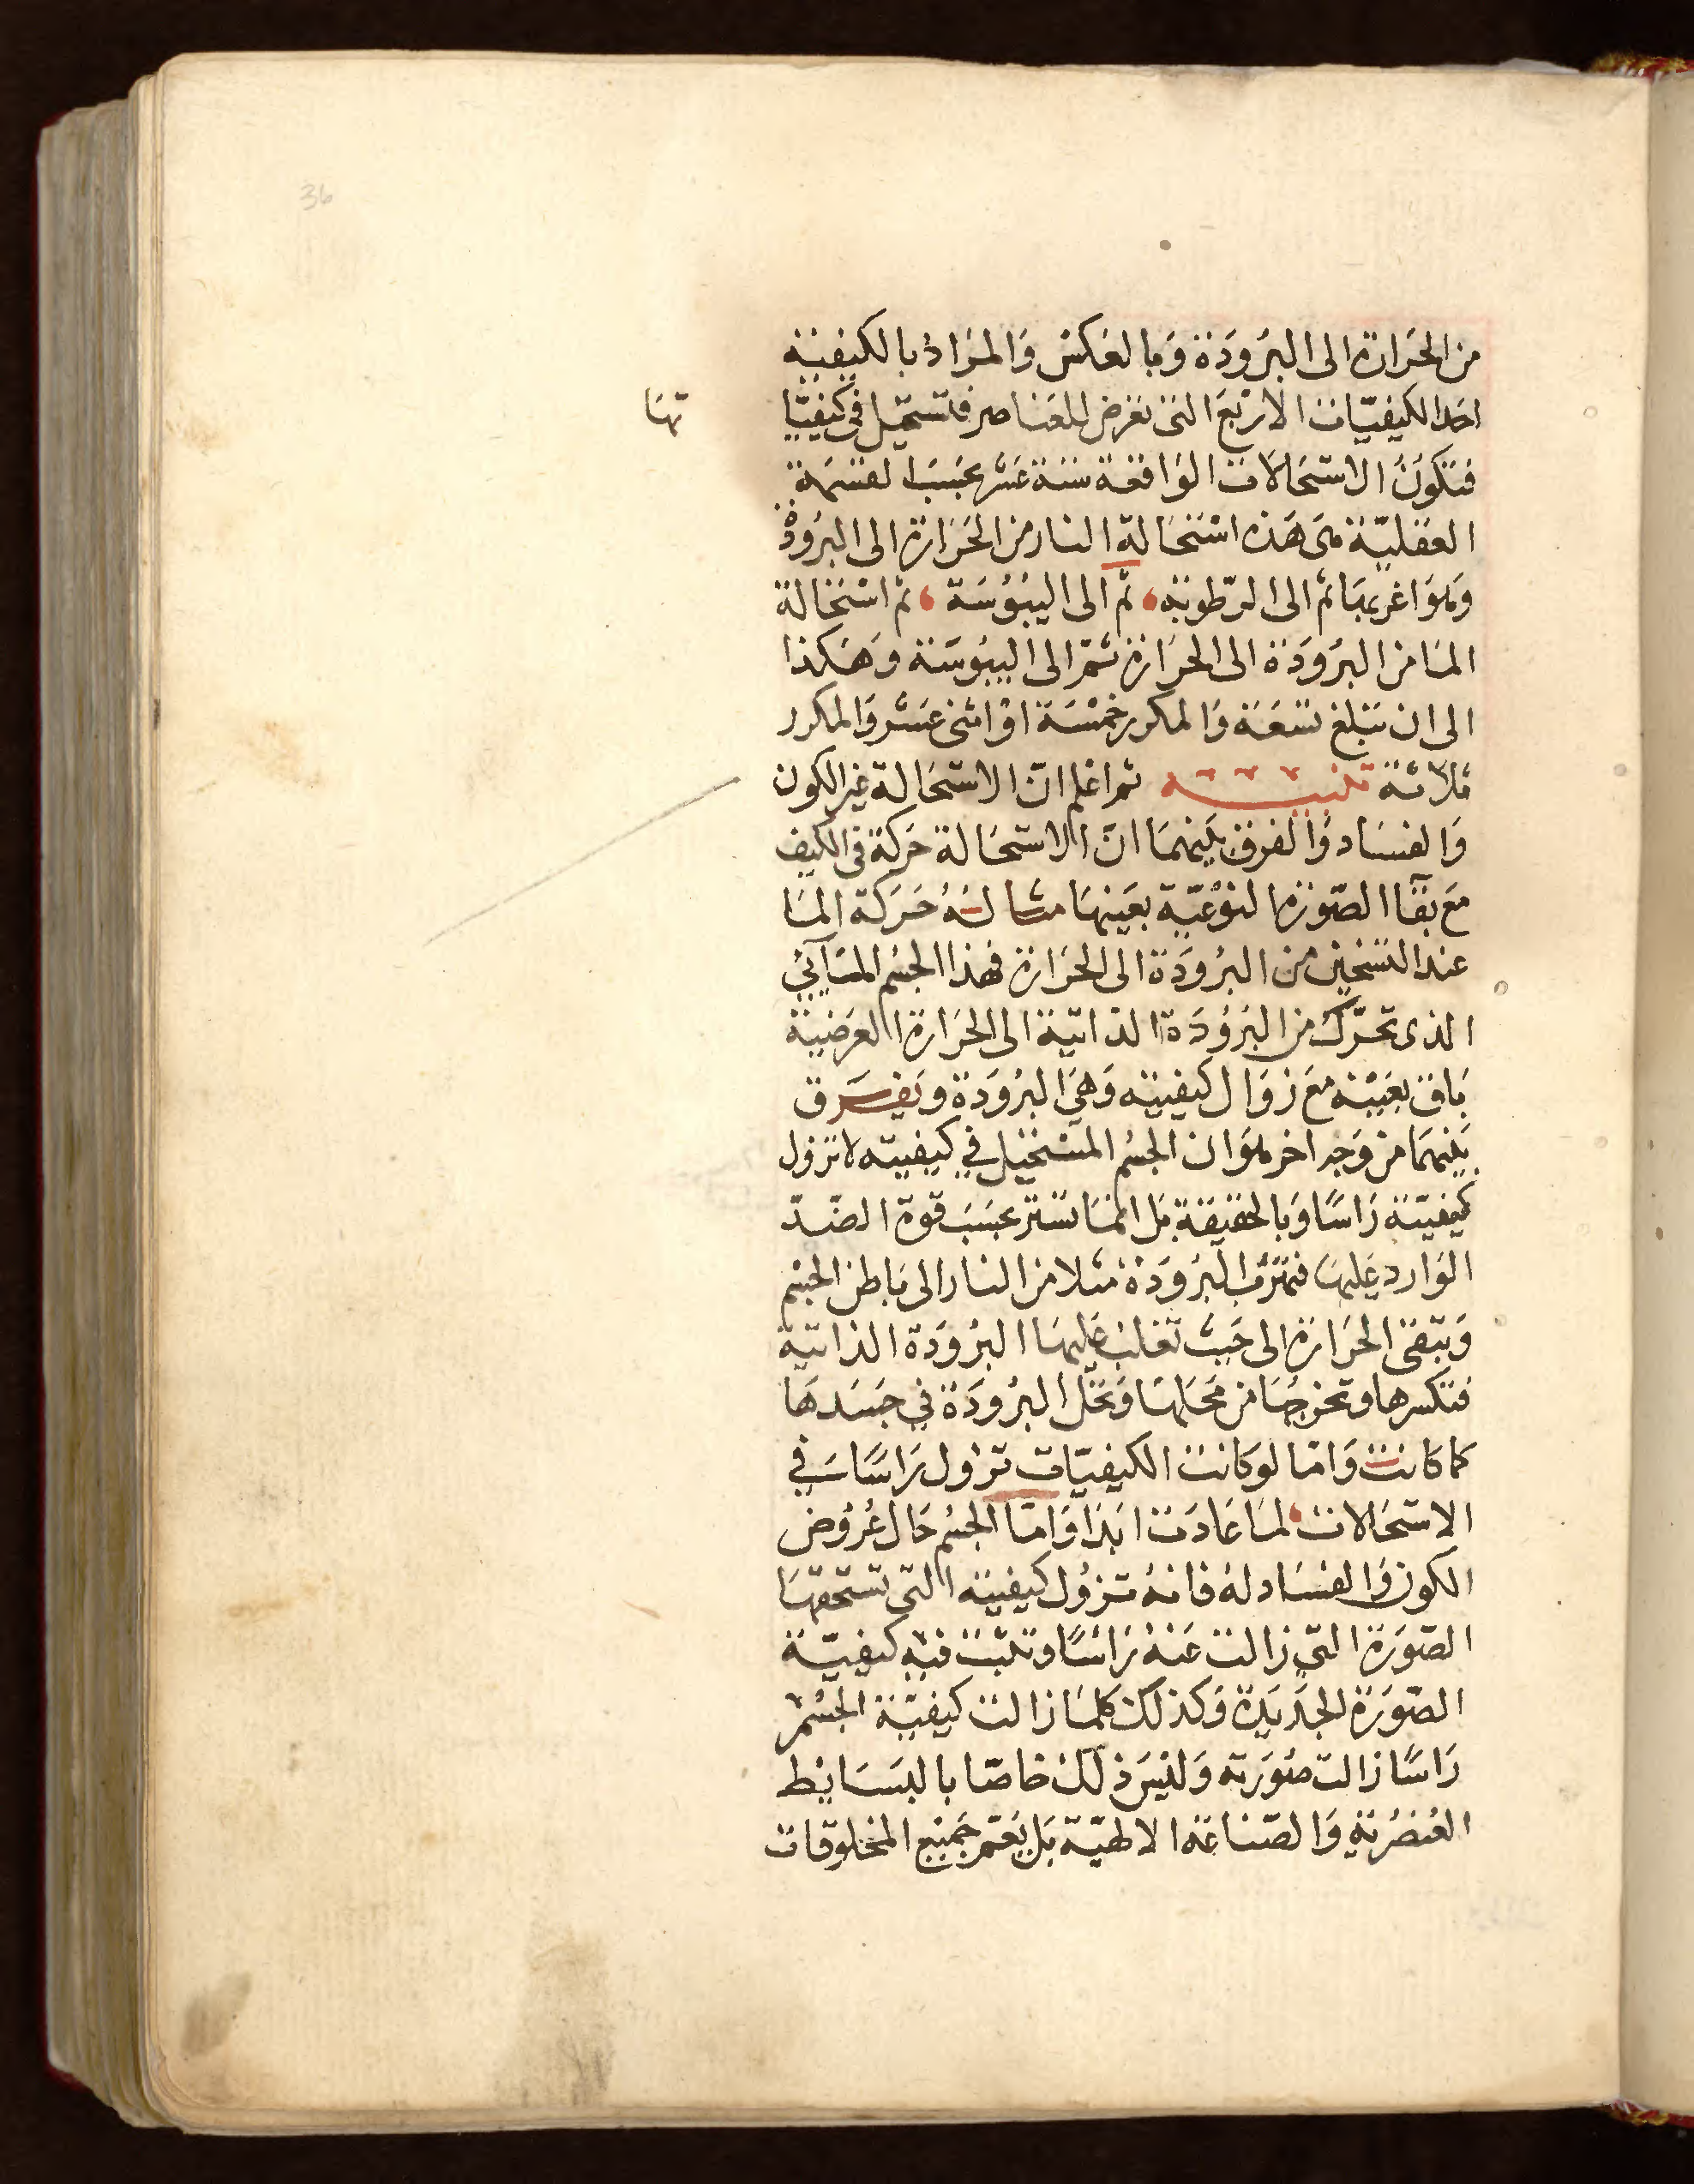 36
من الحَرَارة الى البرُودَة وَبالعَكس وَالمرَاد بالكيفيّة
احَدا لكيفيّات الاربَع التى تعرض للعَناصر فتستحيل فى كيفيّا
تهَا
فتكونُ الاستحَالاَت الوَاقعَة ستة عَشر بحَسَب القسمَة
العَقليّة متى هَذه استحَالة النار من الحَرَارة الى البرُودة
وَهوَ اغربهَا ثم الى الرّطوبَة ، ثم الى اليبُوُسَة ، ثم استحَالة
المَا من البرُودَة الى الحرَارة ثمّ الى اليبُوسَة وَهَكذا
الى ان تبلغ تسعَة وَالمكرر خمسَة اوْ اثنى عَشر وَالمكرر
ثلاثة تنبيه ثم اعْلم انّ الاستحَالة غير الكون
وَالفسَاد وَالفرق بَينهمَا انّ الاستحَالة حَركة فى الكيف
مَع بقآ الصّورَة النوْعيّة بعَينهَا مثالُهُ حَرَكة المَا
عند التسخين من البرُودَة الى الحَرَارة فهذا الجسُم المَآئي
الذى تحرّك من البَرُودَة الذاتيّة الى الحَرَارة العرَضيّة
بَاق بعَيْنه مَع زوَال كيفيته وَهيَ البرُودَة وَيفرَق
بَينهمَا من وَجه اخر هوَ ان الجسُم المستحيل في كيفيته لا تزول
كيفيّته رَاسًا وَبالحقيقة بَل انمَا تستتر بحَسَب قوة الضّدّ
الوَارد عَليهَا فتهَرُب البرُودَة مثلا من النار الى بَاطن الجسْم
وَتبقى الحرَارة الى حَيث تغلب عَليهَا البرُودَة الذاتية
فتكسرها وتخرجهَا من مَحَلهَا وَتحَل البرُودَة في جسَدهَا
كما كانت وَامّا لو كانت الكيفيّات تزول رَاسًا في
الاستحَالات ، لمَا عَادَت ابَدًا وَامّا الجسُم حَال عُرُوض
الكون وَالفسَاد لهُ فانهُ تزوُل كيفيته التى تستحقهَا
الصّورَة التى زالت عَنهُ رَاسًا وتثبت فيه كيفيّة
الصّورَة الجَديَدة وَكذلك كلمَا زالت كيفيّة الجسُم
رَاسًا زالت صُورَته وَليسَ ذلك خاصّا بالبسَايط
العُنصُريّة وَالصّناعَة الالهيّة بَل يَعُم جَميْع المخلوقات